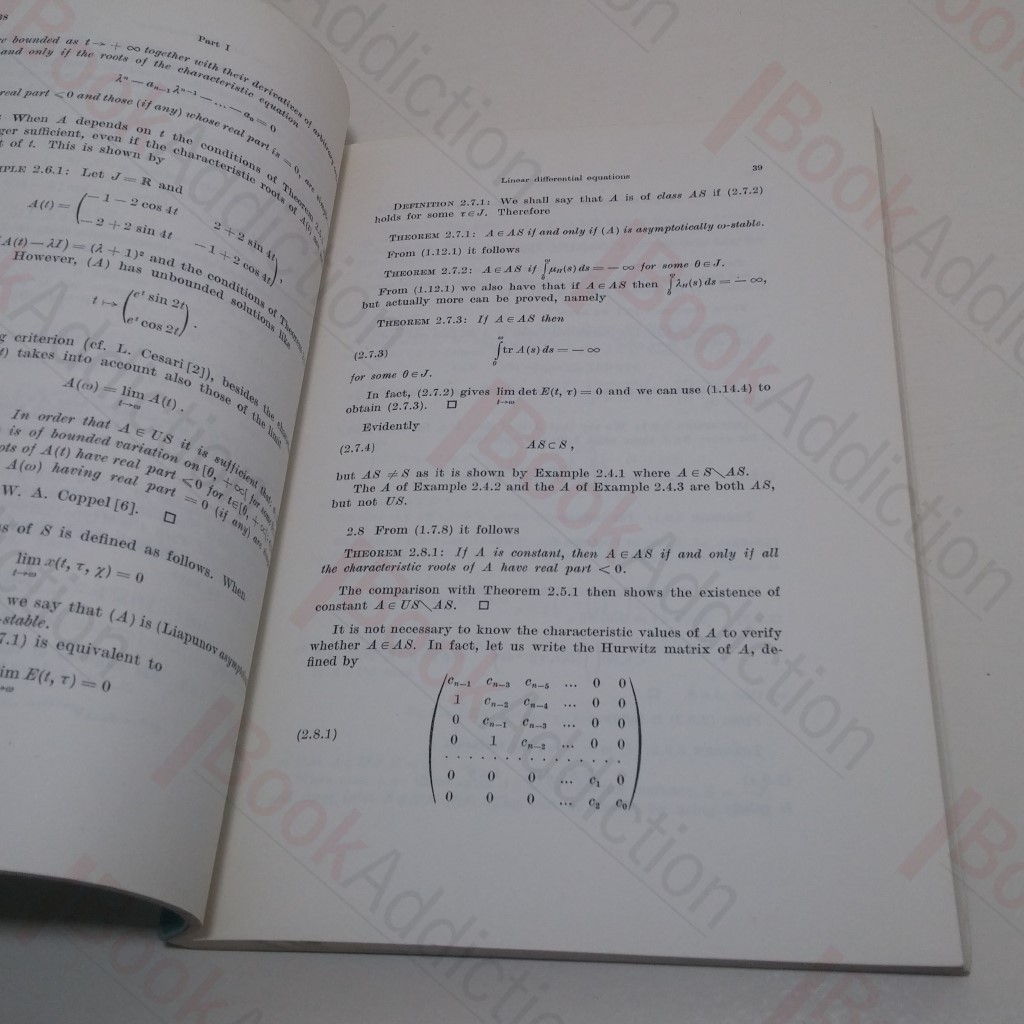 Part I
be bounded as t → + ∞ together with their derivatives of
and only if the roots of the characteristic equation
λⁿ — aₙ₋₁ λⁿ⁻¹ — ... — a₀ = 0
real part < 0 and those (if any) whose real part is = 0, are
When A depends on t the conditions of Theorem
ger sufficient, even if the characteristic roots of A(t)
t of t. This is shown by
MPLE 2.6.1: Let J = R and
A(t) = ( —1 — 2 cos 4t   2 + 2 sin 4t
—2 + 2 sin 4t   —1 + 2 cos 4t ),
(A(t) — λI) = (λ + 1)² and the conditions of Theorem
However, (A) has unbounded solutions like
t ↦ ( eᵗ sin 2t
eᵗ cos 2t ) .
g criterion (cf. L. Cesari [2]), besides the
t) takes into account also those of the limit
A(ω) = lim A(t) .
t→ω
In order that A ∈ US it is sufficient that
is of bounded variation on [θ, +∞[ for some
ots of A(t) have real part < 0 for t∈[θ, +∞[
A(ω) having real part = 0 (if any) are
W. A. Coppel [6]. □
s of S is defined as follows. When
lim x(t, τ, χ) = 0
t→ω
we say that (A) is (Liapunov)
-stable.
7.1) is equivalent to
im E(t, τ) = 0
→ω
Linear differential equations 39
DEFINITION 2.7.1: We shall say that A is of class AS if (2.7.2)
holds for some τ ∈ J. Therefore
THEOREM 2.7.1: A ∈ AS if and only if (A) is asymptotically ω-stable.
From (1.12.1) it follows
THEOREM 2.7.2: A ∈ AS if ∫θω μH(s) ds = — ∞ for some θ ∈ J.
From (1.12.1) we also have that if A ∈ AS then ∫θω λH(s) ds = — ∞,
but actually more can be proved, namely
THEOREM 2.7.3: If A ∈ AS then
(2.7.3) ∫θω tr A(s) ds = — ∞
for some θ ∈ J.
In fact, (2.7.2) gives lim det E(t, τ) = 0 and we can use (1.14.4) to
t→ω
obtain (2.7.3). □
Evidently
(2.7.4) AS ⊂ S ,
but AS ≠ S as it is shown by Example 2.4.1 where A ∈ S∖AS.
The A of Example 2.4.2 and the A of Example 2.4.3 are both AS,
but not US.
2.8 From (1.7.8) it follows
THEOREM 2.8.1: If A is constant, then A ∈ AS if and only if all
the characteristic roots of A have real part < 0.
The comparison with Theorem 2.5.1 then shows the existence of
constant A ∈ US∖AS. □
It is not necessary to know the characteristic values of A to verify
whether A ∈ AS. In fact, let us write the Hurwitz matrix of A, de-
fined by
cₙ₋₁ cₙ₋₃ cₙ₋₅ ... 0 0
1 cₙ₋₂ cₙ₋₄ ... 0 0
0 cₙ₋₁ cₙ₋₃ ... 0 0
(2.8.1) 0 1 cₙ₋₂ ... 0 0
. . . . . . . . . . . . . . .
0 0 0 ... c₁ 0
0 0 0 ... c₂ c₀